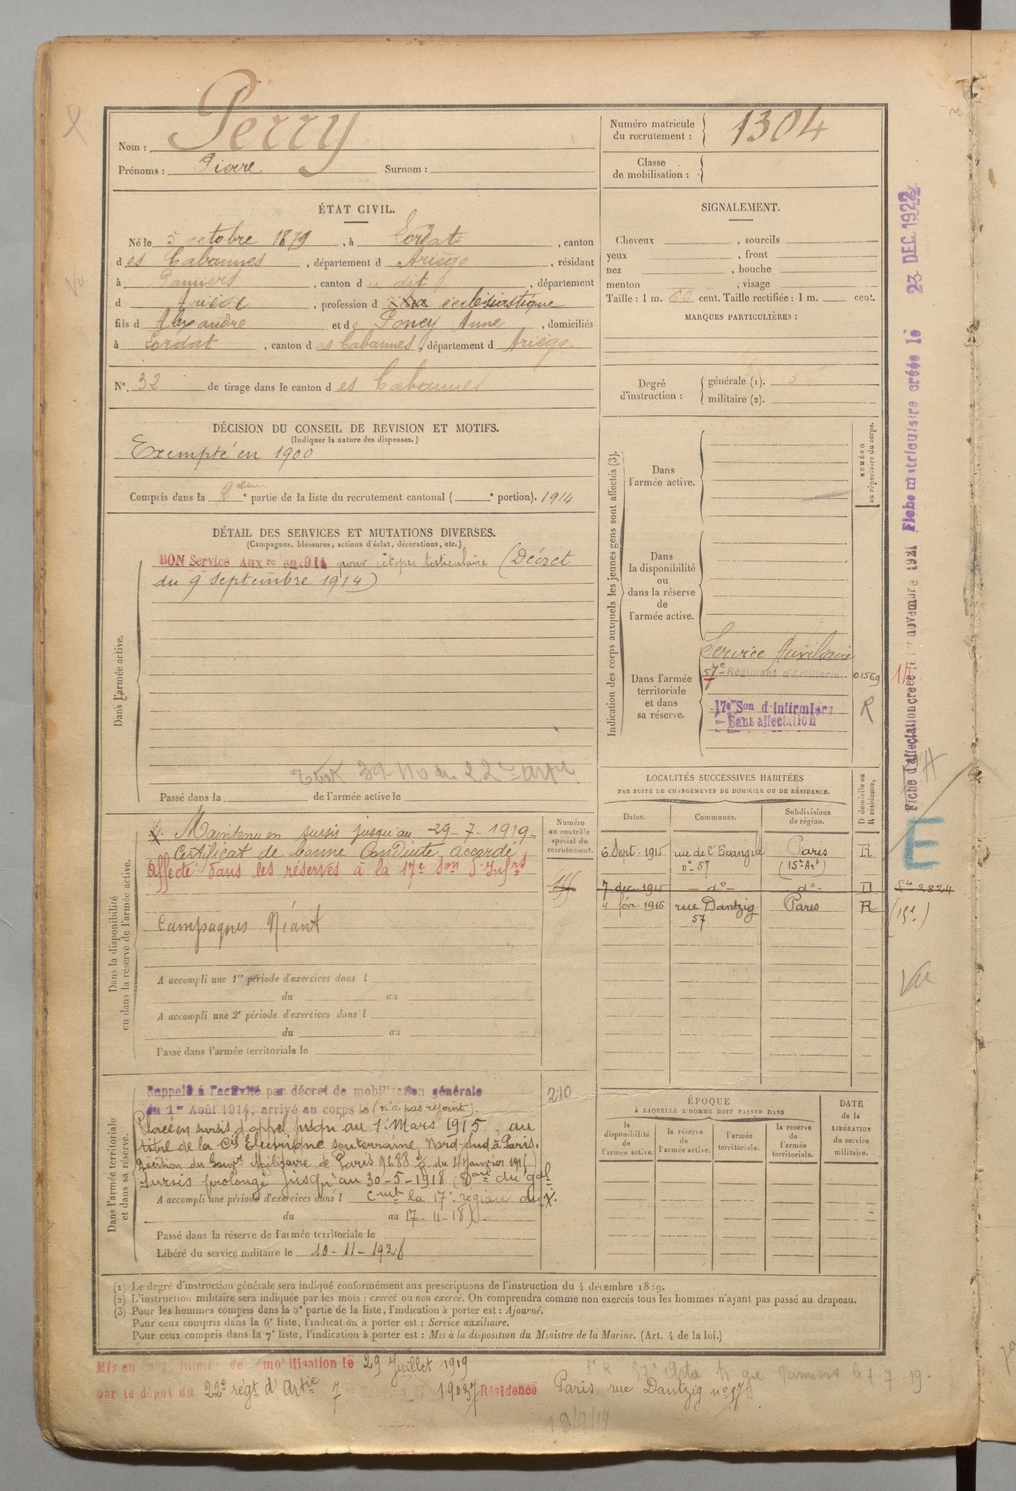 Nom : Perry
Prénoms : Pierre Surnom :
Numéro matricule du recrutement : 1304
Classe de mobilisation :
ÉTAT CIVIL.
Né le 5 octobre 1879, à Lordat, canton
des Cabannes, département d Ariège, résidant
à Pamiers, canton du dit, département
d Ariège, profession d ecclésiastique
fils d Alexandre et de Poncy Anne, domiciliés
à Lordat, canton des Cabannes, département d Ariège.
N° 32 de tirage dans le canton des Cabannes
SIGNALEMENT.
Cheveux , sourcils
yeux , front
nez , bouche
menton , visage
Taille : 1 m. cent. Taille rectifiée : 1 m. cent.
MARQUES PARTICULIÈRES :
Degré d'instruction : générale (1). 3
militaire (2).
DÉCISION DU CONSEIL DE REVISION ET MOTIFS.
(Indiquer la nature des dispenses.)
Exempté en 1900
Compris dans la partie de la liste du recrutement cantonal ( portion). 1914
DÉTAIL DES SERVICES ET MUTATIONS DIVERSES.
(Campagnes, blessures, actions d'éclat, décorations, etc.)
BON Service Auxre en 1914 pour testiculaire (Décret
du 9 Septembre 1914)
Dans l'armée active.
Passé dans la de l'armée active le
Indication des corps auxquels les jeunes gens sont affectés (3).
NUMÉRO au répertoire du corps.
Dans l'armée active.
Dans la disponibilité ou dans la réserve de l'armée active.
Dans l'armée territoriale et dans sa réserve.
Service Auxiliaire
57e Régiment d'Artillerie 01569
17e Son d'Infirmiers
Sans affectation
R
Dans la disponibilité ou dans la réserve de l'armée active.
Maintenu en sursis jusqu'au 29-7-1919
Certificat de bonne Conduite accordé
Affecté dans les réserves à la 17e Son d'Infrs
Campagnes Néant
A accompli une 1re période d'exercices dans l
du au
A accompli une 2e période d'exercices dans l
du au
Passé dans l'armée territoriale le
Numéro au contrôle spécial du recrutement.
LOCALITÉS SUCCESSIVES HABITÉES
PAR SUITE DE CHANGEMENTS DE DOMICILE OU DE RÉSIDENCE.
D domicile ou R résidence.
Dates. Communes. Subdivisions de région.
6 Sept. 1915 rue de l'Evangile n° 57 Paris (15e Art) R
7 dec 1915 - do - - do - D
4 fév. 1916 rue Dantzig 57 Paris R
Dans l'armée territoriale et dans sa réserve.
Rappelé à l'activité par décret de mobilisation générale
du 1er Août 1914, arrivé au corps le (n'a pas rejoint).
Placé en sursis d'appel jusqu'au 1er Mars 1915, au
titre de la Cie Electrique souterraine Nord-Sud à Paris.
Décision du Gouvr Militaire de Paris
Sursis prolongé jusqu'au 30-5-1918
A accompli une période d'exercices dans l
la 17e région du
du au 17-11-18).
Passé dans la réserve de l'armée territoriale le
Libéré du service militaire le 10-11-1928
210
ÉPOQUE
À LAQUELLE L'HOMME DOIT PASSER DANS
la disponibilité de l'armée active.
la réserve de l'armée active.
l'armée territoriale.
la réserve de l'armée territoriale.
DATE de la LIBÉRATION du service militaire.
(1) Le degré d'instruction générale sera indiqué conformément aux prescriptions de l'instruction du 4 décembre 1889.
(2) L'instruction militaire sera indiquée par les mots : exercé ou non exercé. On comprendra comme non exercés tous les hommes n'ayant pas passé au drapeau.
(3) Pour les hommes compris dans la 5e partie de la liste, l'indication à porter est : Ajourné.
Pour ceux compris dans la 6e liste, l'indication à porter est : Service auxiliaire.
Pour ceux compris dans la 7e liste, l'indication à porter est : Mis à la disposition du Ministre de la Marine. (Art. 4 de la loi.)
Mis en de mobilisation le 29 Juillet 1919
par le dépôt du 22e régt d'Artie Résidence Paris rue Dantzig
Fiche d'affectation créée le novembre 1921 Fiche matriculaire créée le 23 DEC. 1922
E
Vu